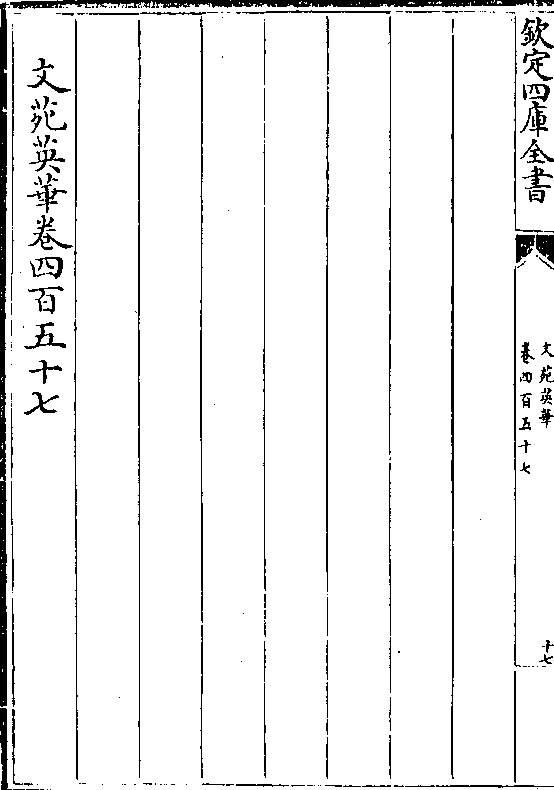 欽定四庫全書
文苑英華
卷四百五十七
十七
文苑英華卷四百五十七